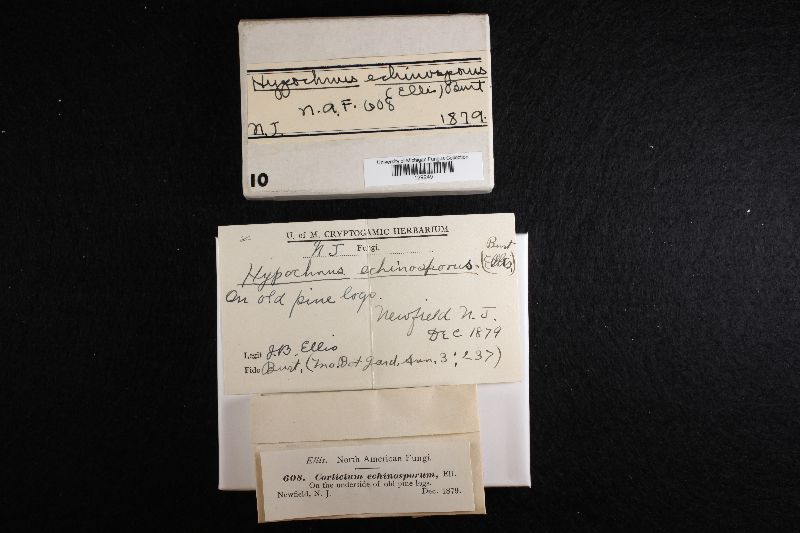 Hypochnus echinosporus
(Ellis) Burt.
N.A.F. 608
N.J. 1879.
10
University of Michigan Fungus Collection
U. of M. CRYPTOGAMIC HERBARIUM
N J Fungi.
Hypochnus echinosporus. (Ellis) Burt
On old pine logs.
Newfield N. J.
DEC 1879
Legit J.B. Ellis
Fide Burt, (Mo. Bot Gard. Ann. 3: 237)
Ellis. North American Fungi.
608. Corticium echinosporum, Ell.
On the underside of old pine logs.
Newfield, N. J. Dec. 1879.